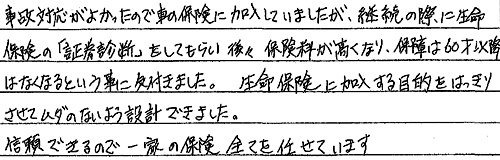 事故対応がよかったので車の保険に加入していましたが、継続の際に生命
保険の「証券診断」をしてもらい後々保険料が高くなり、保障は60才以降
はなくなるという事に気付きました。 生命保険に加入する目的をはっきり
させてムダのないよう設計できました。
信頼できるので一家の保険全てを任せています